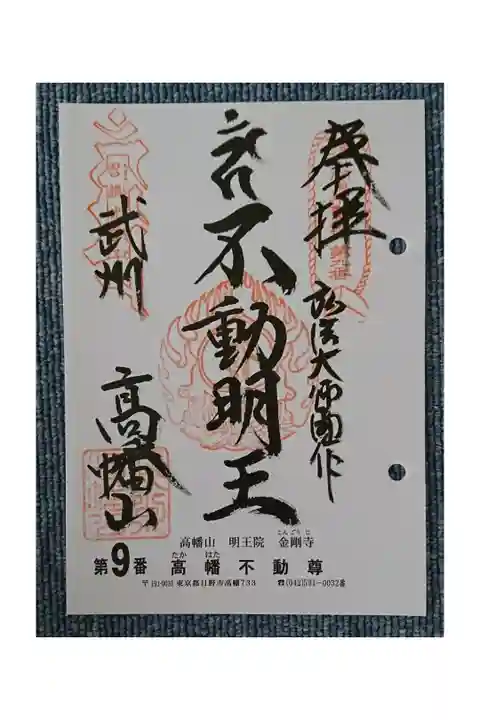 奉拝
弘法大師御作
不動明王
武州
高幡山
高幡山 明王院 金剛寺
こんごうじ
第9番 高幡不動尊
たかはた
〒191-0031 東京都日野市高幡733 ☎(042)591-0032番